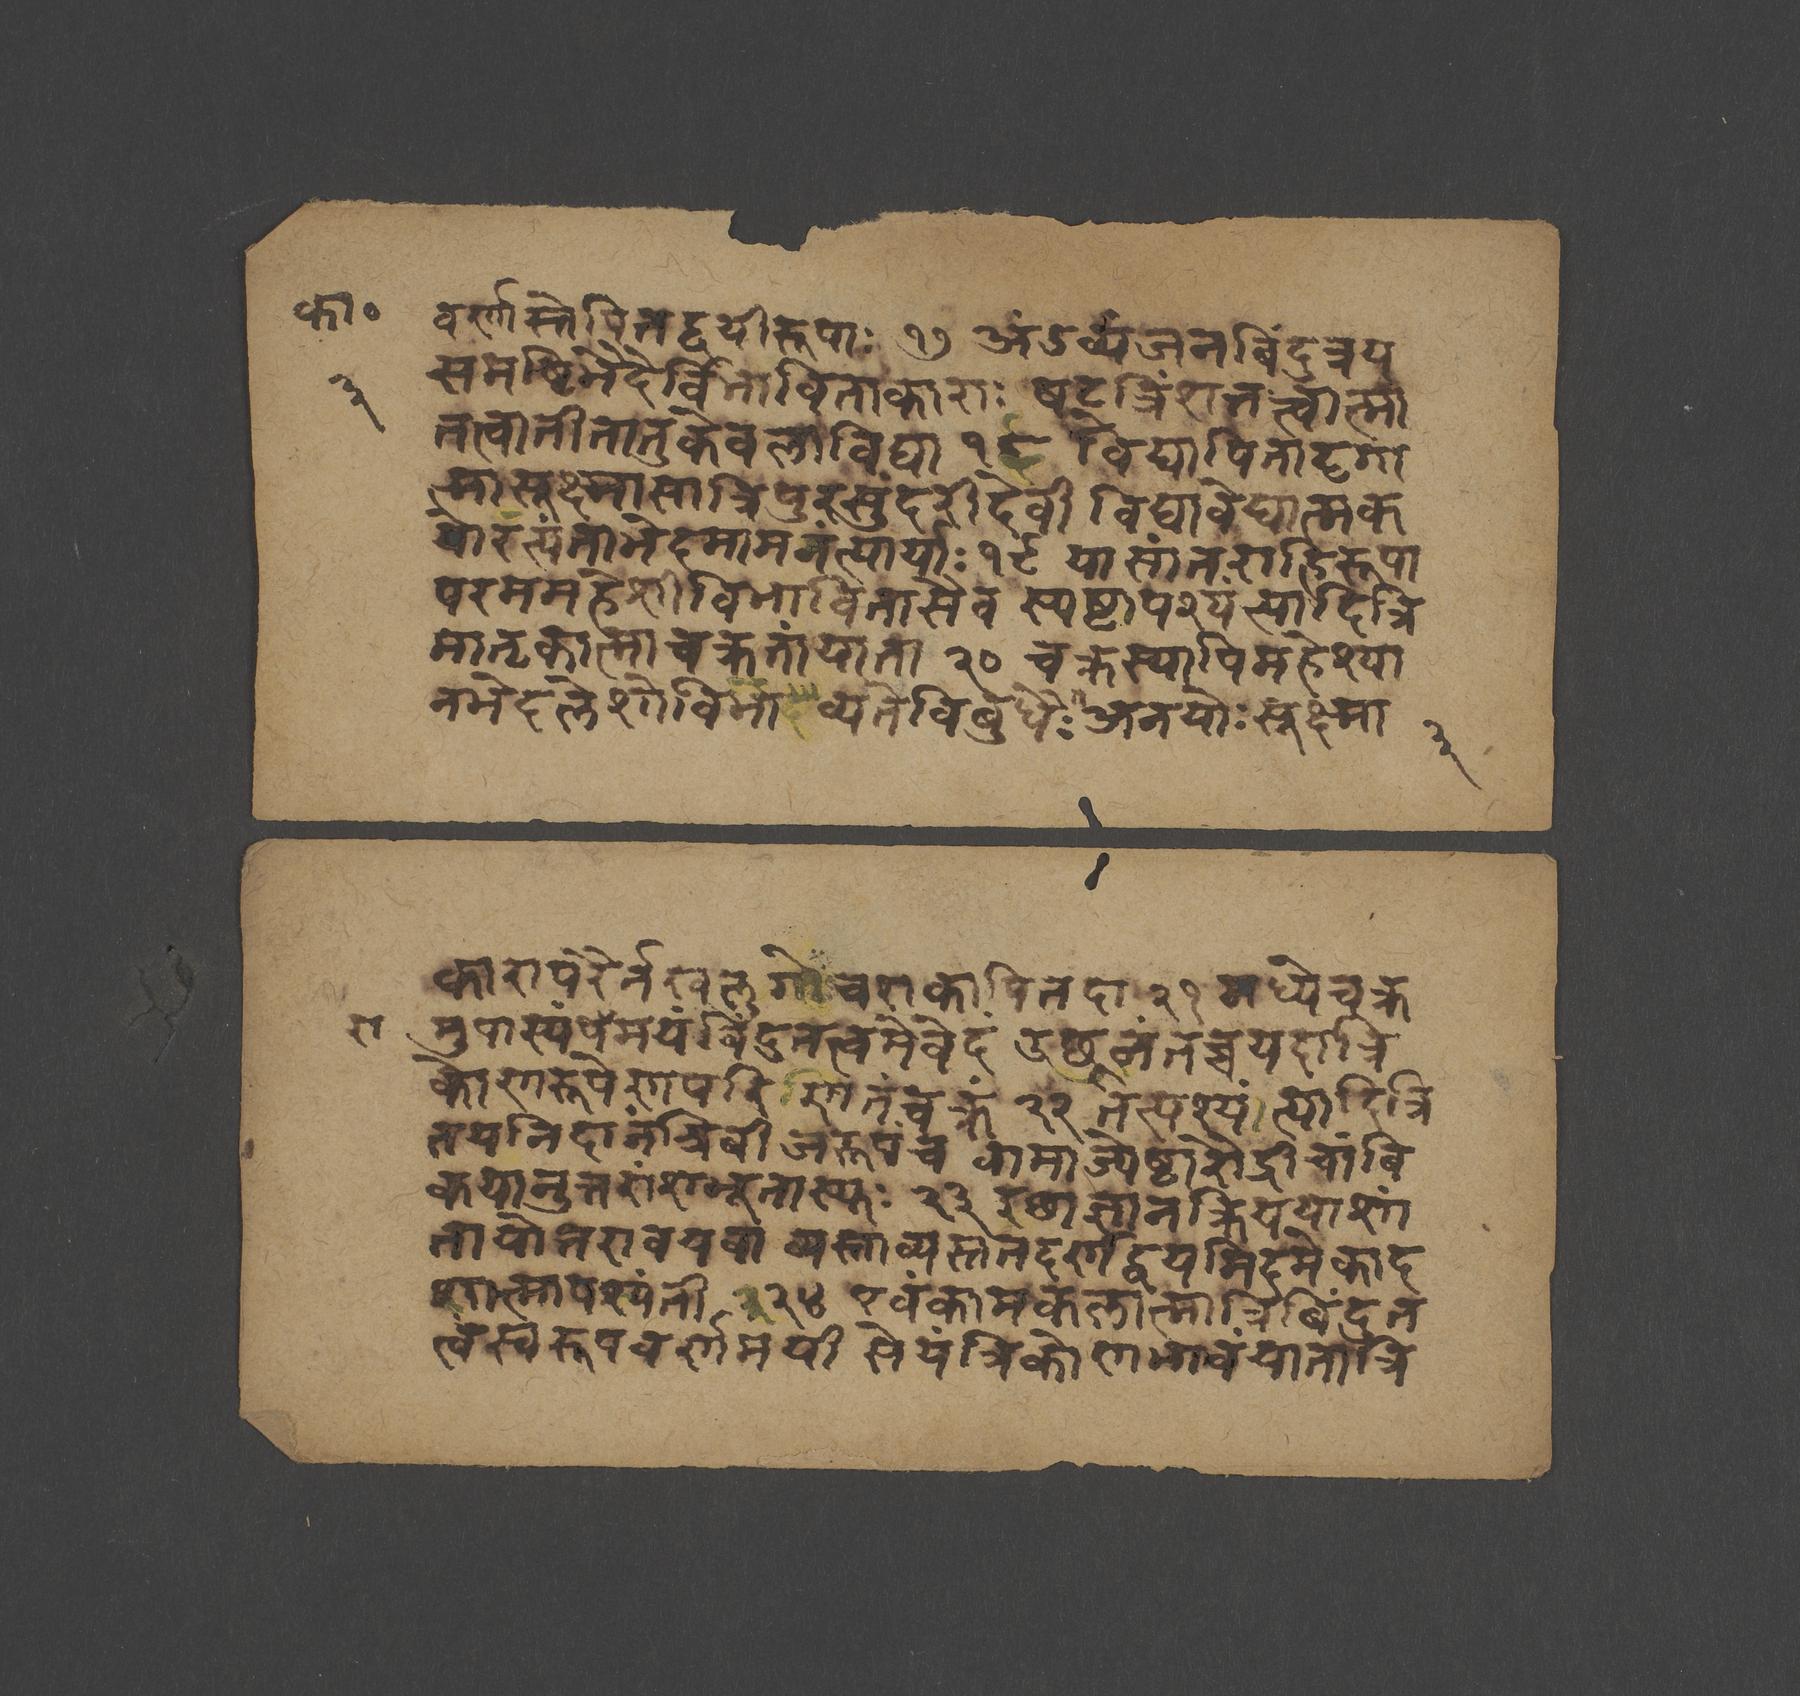 का॰
वर्णास्तेपितद्द्वयीरूपाः १७ अंऽव्यंजनबिंदुत्रय
३
समष्टिभेदैर्विभाविताकाराः षट्त्रिंशतत्त्वात्मा
तत्वातीतातुकेवलाविद्या १८ विद्यापितादृगा
त्मासूक्ष्मासात्रिपुरसुंदरीदेवी विद्यावेद्यात्मक
योरत्यंताभेदमामनंत्यार्याः १९ यासांतराहिरूपा
परममहेशीविभावितासैव स्पष्टापश्यंत्यादित्रि
मातृकात्माचक्रतांयाता २० चक्रस्यापिमहेश्या
नभेदलेशोविभाव्यतेविबुधैः अनयोः सूक्ष्मा
३
कारापरैर्नखलुगोचराकापितदा २१ मध्येचक्र
मुपास्यंपमयंबिंदुतत्वमेवेदं उच्छूनंतच्चयदात्रि
रा
कोणरूपेणपरिणतंचक्रं २२ तत्पश्यंत्यादित्रि
तयनिदानंत्रिबीजरूपंच वामाज्येष्ठारौद्रीचांबि
कयानुत्तरांशभूतास्युः २३ इछाज्ञानक्रिययाशां
तायोत्तरावयवा व्यस्ताव्यस्ततदर्णद्वयमिदमेकाद
शात्मापश्यंती २४ एवंकामकलात्मात्रिबिंदुत
त्वंस्वरूपवर्णमयी सेयंत्रिकोणभावंयातात्रि